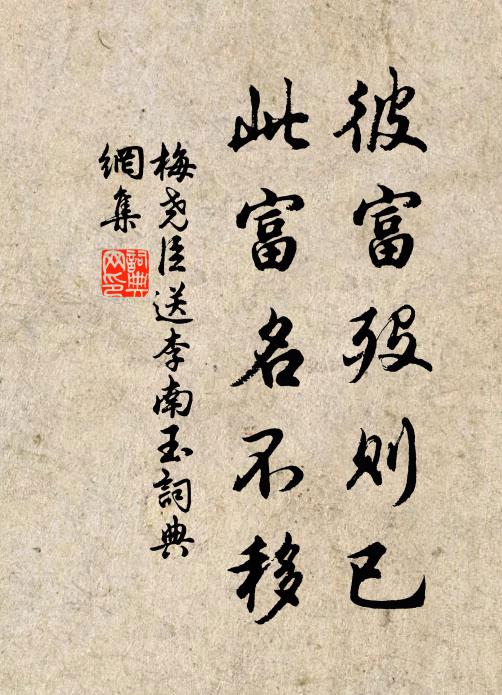 彼富殁则已
此富名不移
梅尧臣送李南玉詞典
網集
詞典
网印